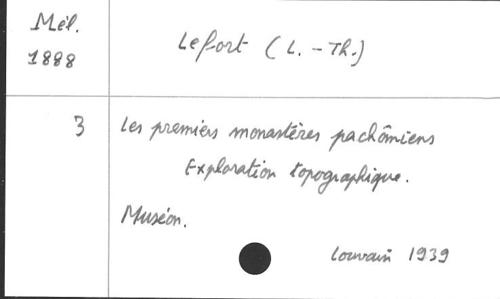 Mél.
1888
Lefort (L.-Th.)
3
Les premiers monastères pachômiens
Exploration topographique.
Muséon.
Louvain 1939